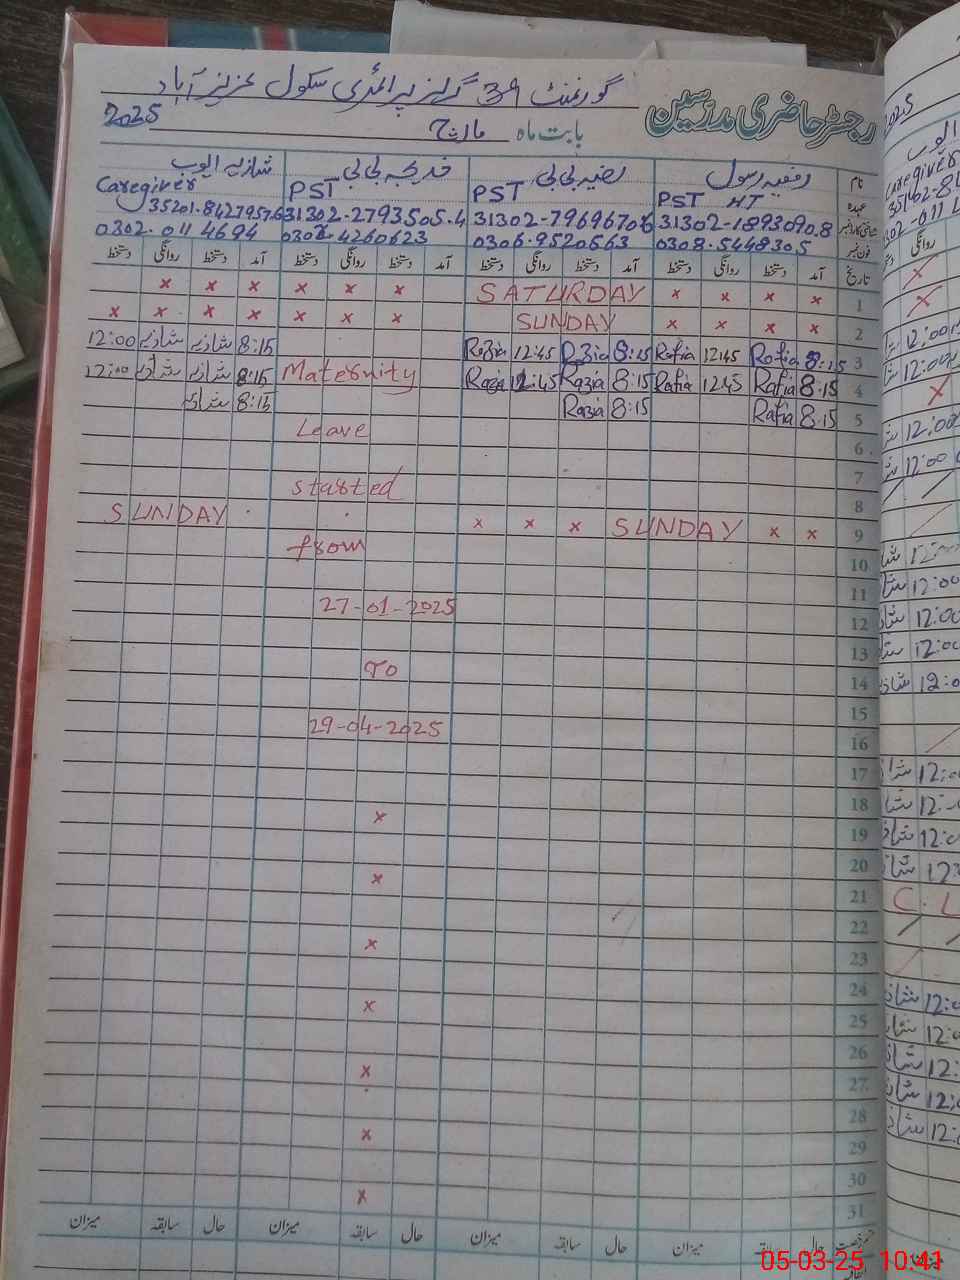 گورنمنٹ 39 گرلز پرائمری سکول عزیز آباد
رجسٹر حاضری مدرسین
بابت ماہ مارچ 2025
نام رفعیہ رسول رضیہ بی بی خدیجہ بی بی شازیہ ایوب
عہدہ PST HT PST PST Caregiver
31302-1893090.8 31302-7969670.6 31302-2793505.4 35201-8427957.6
فون نمبر 0308-5448305 0306-9520563 0302-4260623 0302-0114694
تاریخ آمد دستخط روانگی دستخط آمد دستخط روانگی دستخط آمد دستخط روانگی دستخط آمد دستخط روانگی دستخط
1 x x x x SATURDAY x x x x x x
2 x x x x SUNDAY x x x x x x x
3 8:15 Rafia 12:45 Rafia 8:15 Razia 12:45 Razia 8:15 شازیہ شازیہ 12:00
4 8:15 Rafia 12:45 Rafia 8:15 Razia 12:45 Razia Maternity 8:15 شازیہ شازیہ 12:00
5 8:15 Rafia 8:15 Razia 8:15 شازیہ
6 Leave
7
8 started
9 x x SUNDAY x x x SUNDAY
10 from
11
12 27-01-2025
13
14 To
15
16 29-04-2025
17
18
19 x
20
21 x
22
23 x
24
25 x
26
27 x
28
29 x
30
31 x
حال سابقہ میزان حال سابقہ میزان حال سابقہ میزان حال سابقہ میزان
2025
ایوب
Caregiver
روانگی
x
x
12:00
12:00
x
12:00
12:00
12:00
12:00
12:00
12:00
12:0
12:0
12:
12:0
12:
C. L
12:0
12:0
12:
12:0
12:
05-03-25 10:41